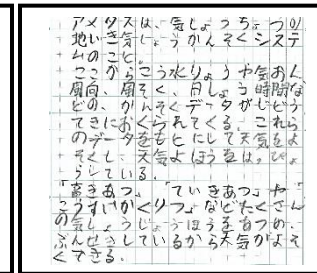 アメダスは、気しょうちょうの
地いき気しょうかんそくシステ
ムのこと。
ここからこう水りょうや気おん
風向、風そく、日しょう時間な
どの、かんそくデータがじどう
てきにおくられてくる。これら
のデータをもとにして天気をよ
そくし、天気よほうをは。ぴょ
うしている。
「高きあつ」「ていきあつ」や
こうすいかくりつ」などたくさん
の気しょうじょうほうをあつめ、
ぶんせきしているから天気がよそ
くできる。